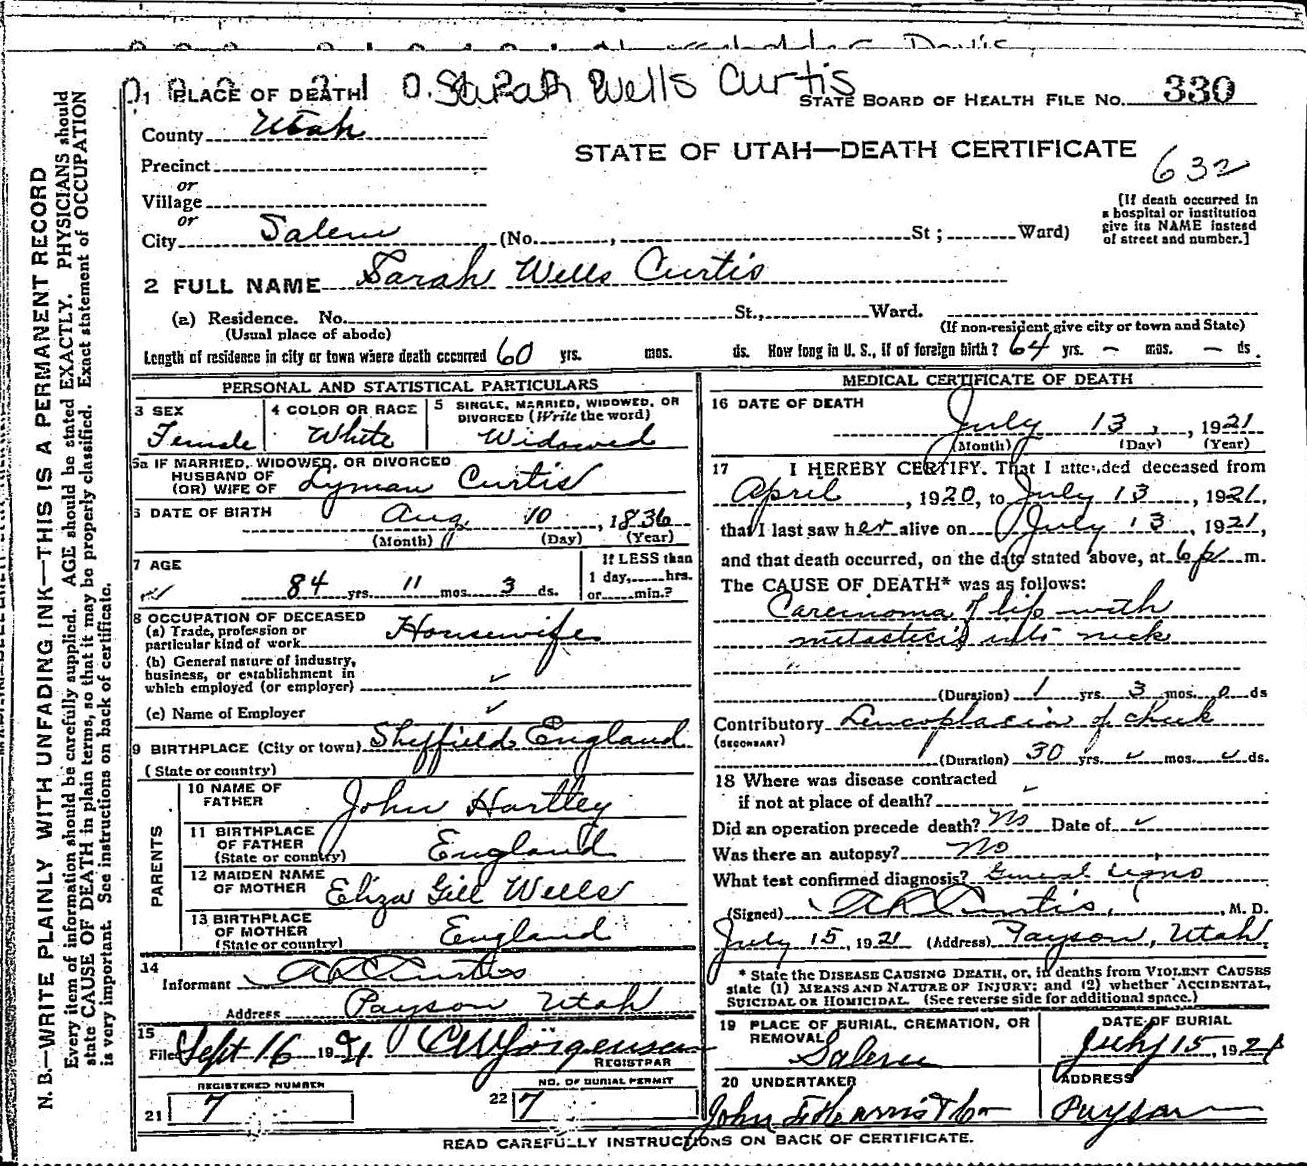 O. Sarah Wells Curtis
1 PLACE OF DEATH
STATE BOARD OF HEALTH FILE NO. 330
County Utah
STATE OF UTAH—DEATH CERTIFICATE
632
Precinct
or
Village
or
City Salem (No. , St ; Ward)
[If death occurred in
a hospital or institution
give its NAME instead
of street and number.]
2 FULL NAME Sarah Wells Curtis
(a) Residence. No. St., Ward.
(Usual place of abode)
(If non-resident give city or town and State)
Length of residence in city or town where death occurred 60 yrs. mos. ds. How long in U. S., if of foreign birth? 64 yrs. – mos. – ds.
PERSONAL AND STATISTICAL PARTICULARS
3 SEX
Female
4 COLOR OR RACE
White
5 SINGLE, MARRIED, WIDOWED, OR
DIVORCED (Write the word)
Widowed
5a IF MARRIED, WIDOWED, OR DIVORCED
HUSBAND OF
(OR) WIFE OF Lyman Curtis
6 DATE OF BIRTH Aug 10, 1836
(Month) (Day) (Year)
7 AGE
84 yrs. 11 mos. 3 ds.
If LESS than
1 day, hrs.
or min.?
8 OCCUPATION OF DECEASED
(a) Trade, profession or
particular kind of work Housewife
(b) General nature of industry,
business, or establishment in
which employed (or employer)
(c) Name of Employer
9 BIRTHPLACE (City or town) Sheffield England
(State or country)
PARENTS
10 NAME OF
FATHER John Hartley
11 BIRTHPLACE
OF FATHER
(State or country) England
12 MAIDEN NAME
OF MOTHER Eliza Gill Wells
13 BIRTHPLACE
OF MOTHER
(State or country) England
14
Informant A L Curtis
Address Payson Utah
15
Filed Sept 16 1921 C W Jörgensen
REGISTRAR
REGISTERED NUMBER
21 7
NO. OF BURIAL PERMIT
22 7
MEDICAL CERTIFICATE OF DEATH
16 DATE OF DEATH
July 13, , 1921
(Month) (Day) (Year)
17 I HEREBY CERTIFY. That I attended deceased from
April , 1920, to July 13 , 1921,
that I last saw her alive on July 13 , 1921,
and that death occurred, on the date stated above, at 6 p m.
The CAUSE OF DEATH* was as follows:
Carcinoma of lip with
metastesis into neck
(Duration) 1 yrs. 3 mos. 0 ds
Contributory Leucoplacia of cheek
(SECONDARY)
(Duration) 30 yrs. mos. ds.
18 Where was disease contracted
if not at place of death?
Did an operation precede death? No Date of
Was there an autopsy? No
What test confirmed diagnosis? General signs
(Signed) A L Curtis, M. D.
July 15, 1921 (Address) Payson, Utah
* State the DISEASE CAUSING DEATH, or, in deaths from VIOLENT CAUSES
state (1) MEANS AND NATURE OF INJURY; and (2) whether ACCIDENTAL,
SUICIDAL OR HOMICIDAL. (See reverse side for additional space.)
19 PLACE OF BURIAL, CREMATION, OR
REMOVAL
Salem
DATE OF BURIAL
July 15, 1921
20 UNDERTAKER
John
ADDRESS
Payson
READ CAREFULLY INSTRUCTIONS ON BACK OF CERTIFICATE.
N. B.—WRITE PLAINLY WITH UNFADING INK—THIS IS A PERMANENT RECORD
Every item of information should be carefully supplied. AGE should be stated EXACTLY. PHYSICIANS should
state CAUSE OF DEATH in plain terms, so that it may be properly classified. Exact statement of OCCUPATION
is very important. See instructions on back of certificate.